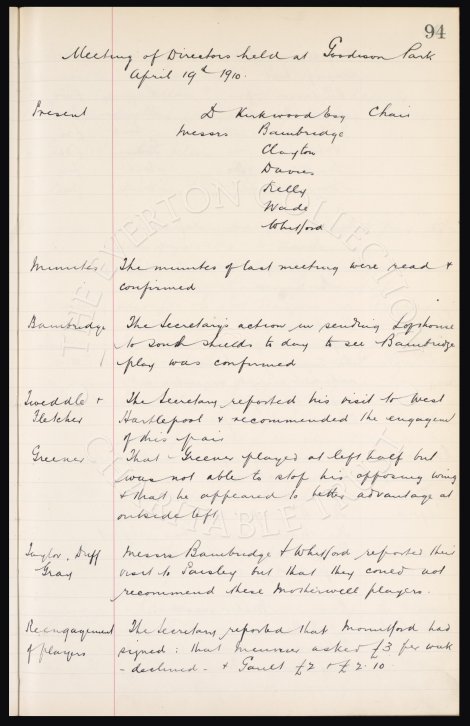 94
Meeting of Directors held at Goodison Park
April 19th 1910.
Present D Kirkwood Esq Chair
Messrs Bainbridge
Clayton
Davies
Kelly
Wade
Whitford
Minutes The minutes of last meeting were read &
confirmed
Bainbridge The Secretary's action in sending
to South Shields to day to see Bainbridge
play was confirmed
Tweddle & The Secretary reported his visit to West
Fletcher Hartlepool & recommended the
of this pair
Greener That Greener played at left half but
was not able to stop his opposing wing
& that he appeared to better advantage at
outside left
Taylor, Duff Messrs Bainbridge & Whitford reported their
Gray visit to Paisley but that they could not
recommend these Motherwell players.
Reengagement The Secretary reported that Mountford had
of players signed: that asked £3 per week
- declined - & Gault £2 & £2.10
THE EVERTON COLLECTION
CHARITABLE TRUST